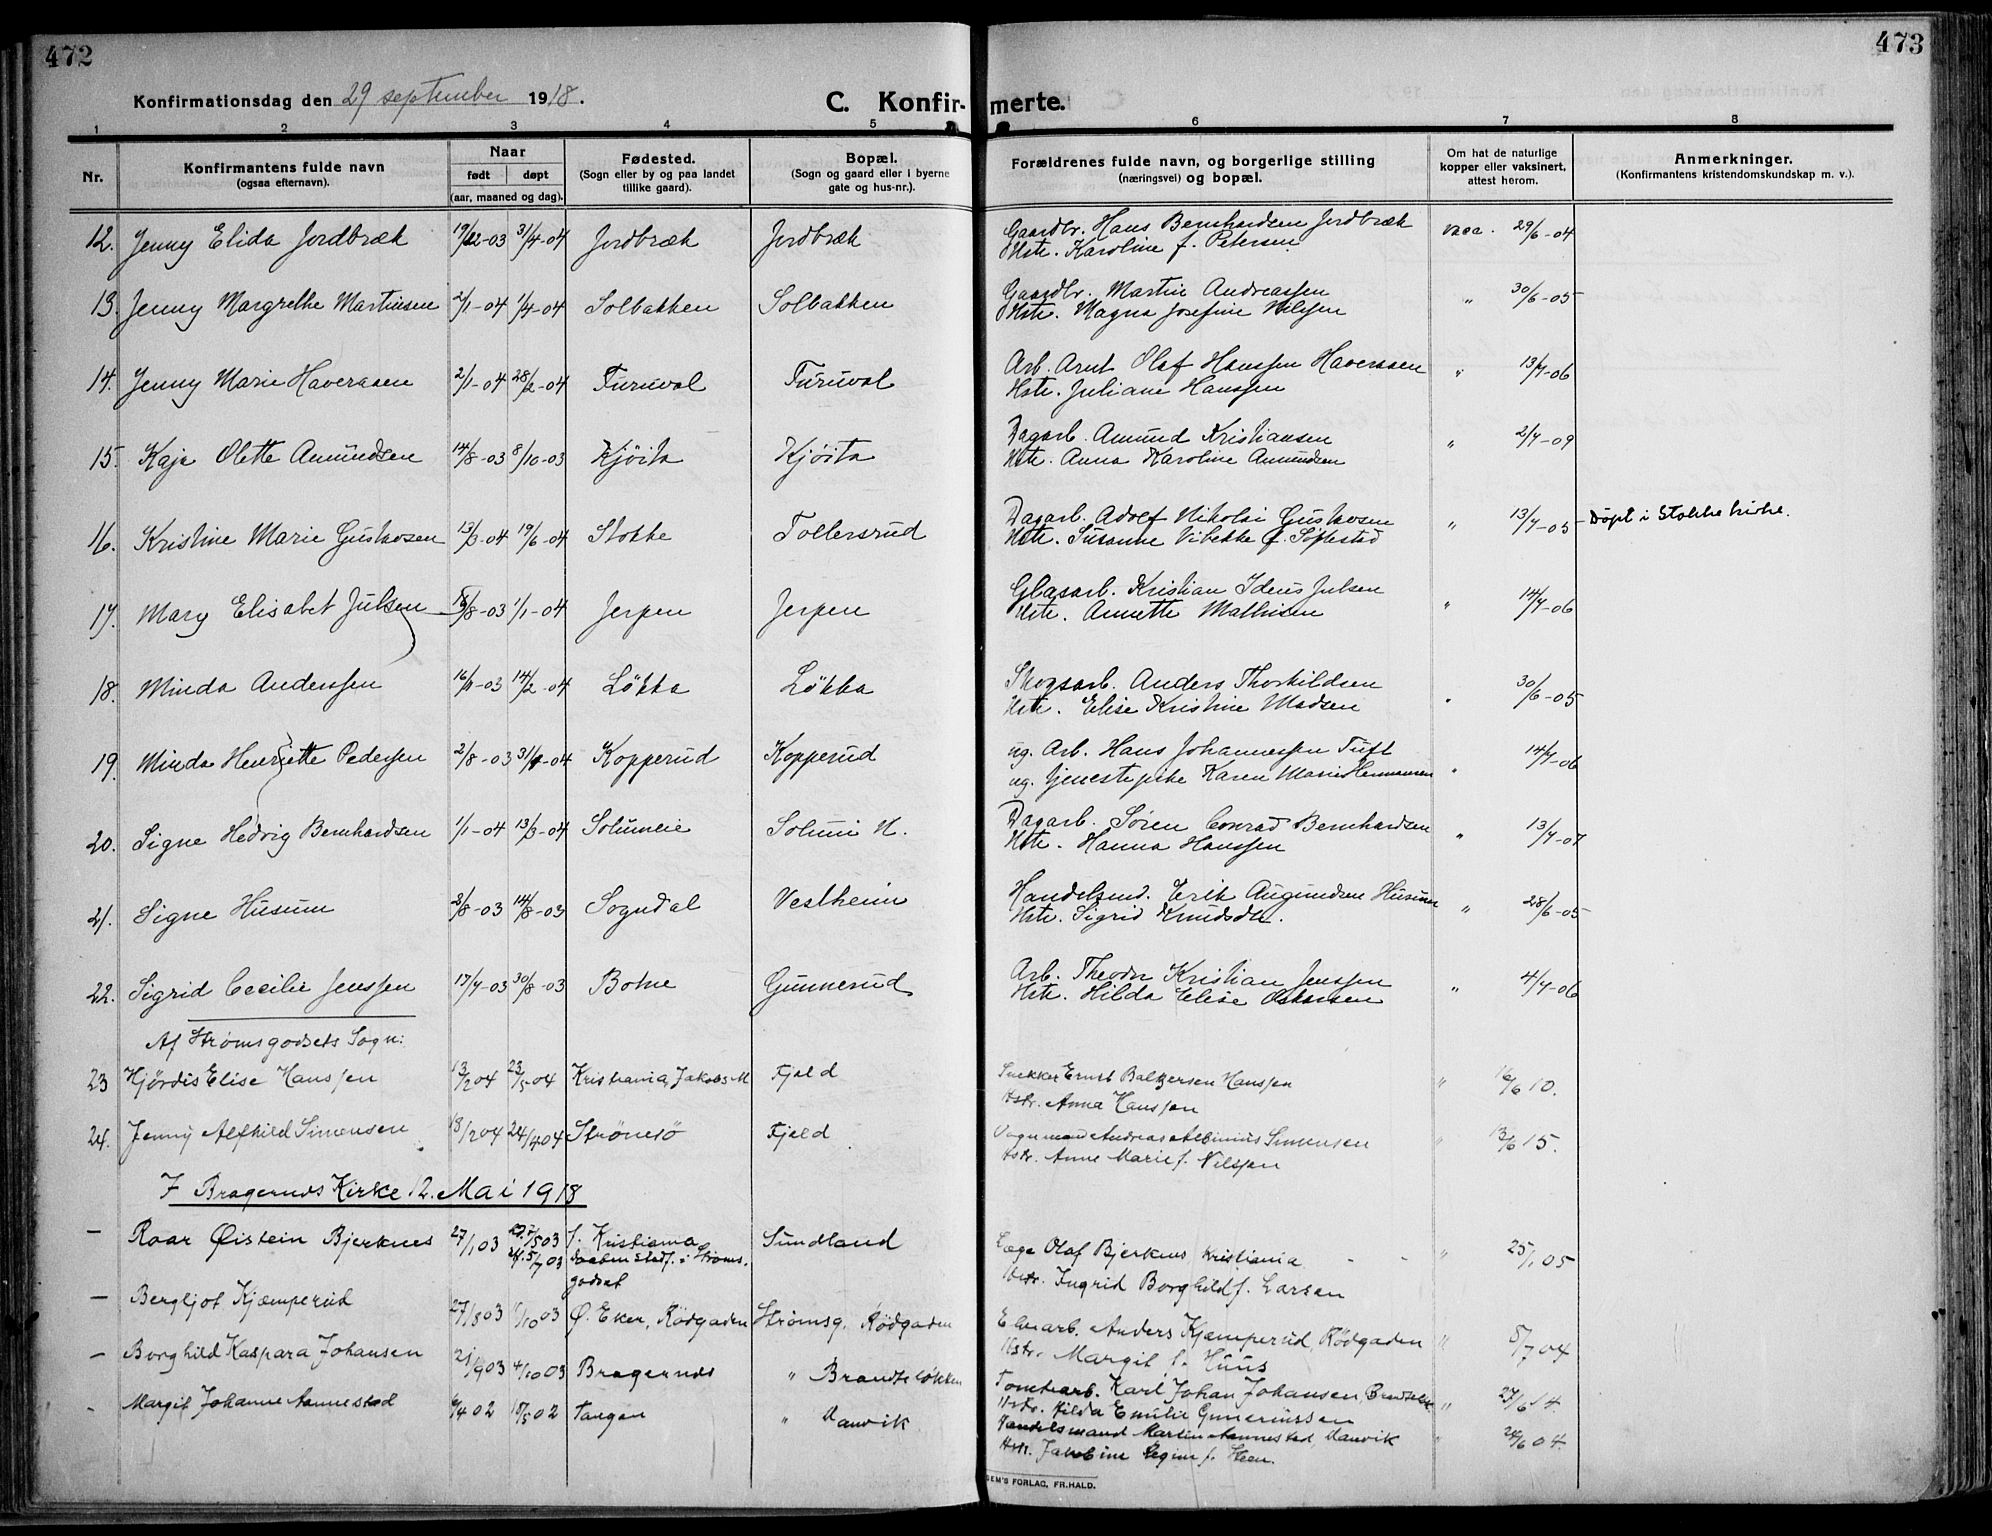 472
473
Konfirmationsdag den 29 september 1918.
C. Konfirmerte.
1 2 3 4 5 6 7 8
Nr.
Konfirmantens fulde navn
(ogsaa efternavn).
Naar
født døpt
(aar, maaned og dag).
Fødested.
(Sogn eller by og paa landet
tillike gaard).
Bopæl.
(Sogn og gaard eller i byerne
gate og hus-nr.).
Forældrenes fulde navn, og borgerlige stilling
(næringsvei) og bopæl.
Om hat de naturlige
kopper eller vaksinert,
attest herom.
Anmerkninger.
(Konfirmantens kristendomskundskap m. v.).
12. Jenny Elida Jordbræk 19/12-03 3/4-04 Jordbræk Jordbræk Gaardbr. Hans Bernhardsen Jordbræk vacc. 29/6-04
Hstr. Karoline f. Petersen
13. Jenny Margrethe Martinsen 2/1-04 1/4-04 Solbakken Solbakken Gaardbr. Martin Andreassen " 30/6-05
Hstr. Magna Josefine Nilsen
14. Jenny Marie Haveraaen 2/1-04 28/2-04 Furuvol Furuvol Arb. Arnt Olaf Hanssen Haveraaen " 13/7-06
Hstr. Juliane Hanssen
15. Kaja Olette Amundsen 14/8-03 8/10-03 Kjøita Kjøita Dagarb. Amund Kristiansen " 2/7-09
Hstr. Anna Karoline Amundsen
16. Kristine Marie Gustavsen 13/3-04 19/6-04 Stokke Tollersrud Dagarb. Adolf Nikolai Gustavsen " 13/7-05 Døpt i Stokke kirke.
Hstr. Susanne Vibekke f. Sortestad
17. Mary Elisabet Julsen /8-03 1/1-04 Jerpen Jerpen Glasarb. Kristian Julsen " 14/7-06
Hstr. Annette Mathisen
18. Minda Anderssen 16/11-03 14/2-04 Løkka Løkka Skogsarb. Anders Thorkildsen " 30/6-05
Hstr. Elise Kristine Madsen
19. Minda Henriette Pedersen 2/8-03 31/1-04 Kopperud Kopperud ug. Arb. Hans Johannessen Tuft " 14/7-06
ug. tjenestepike Karen Marie Hermansen
20. Signe Hedvig Bernhardsen 1/1-04 13/3-04 Solumeie Solum N. Dagarb. Søren Conrad Bernhardsen " 13/7-07
Hstr. Hanna Hanssen
21. Signe Husum 2/8-03 14/8-03 Sogndal Vestheim Handelsmd. Erik Augundsen Husum " 28/6-05
Hstr. Sigrid Knudsdtr.
22. Sigrid Cecilie Jenssen 17/7-03 30/8-03 Botne Gunnerud Arb. Theodor Kristian Jenssen " 4/7-06
Hstr. Hilda Elise Oskarsen
Af Strømsgodsets Sogn:
23 Hjørdis Elise Hanssen 13/2 04 23/5-04 Kristiania, Jakobs M Fjeld Snekker Ernst Baltzersen Hanssen " 16/6 10.
Hstr. Anna Hanssen
24. Jenny Alfhild Simensen 18/2 04 24/4 04 Strømsø Fjeld Vognmand Andreas Albinius Simensen " 13/6 15.
Hstr. Anne Marie f. Nilssen
I Bragernes Kirke 12. Mai 1918
— Roar Øistein Bjerknes 27/1 03 /5 03 f. Kristiania Sundland Læge Olaf Bjerknes Kristiania " 25/1 05
5/7 03 daaben stadf. i Strømsgodset Hstr. Ingrid Borghild f. Larsen
— Bergljot Kjæmperud 27/8 03 /10 03 Ø. Eker, Rødgaden Strømsg. Rødgaden Elvearb. Anders Kjæmperud, Rødgaden " 5/7 04
Hstr. Margit f. Huus
— Borghild Kaspara Johansen 21/9 03 4/10 03 Bragernes " Brandtsløkken Tomtearb. Karl Johan Johansen, " 27/6 14
Hstr. Hilda Emilie Gunneriussen
- Margit Johanne Aannestad /4 02 /5 02 Tangen " Danvik Handelsmand Martin Aannestad, Danvik " 24/6 04.
Hstr. Jakobine Regine f. Heen.
SEM'S FORLAG, FR.HALD.